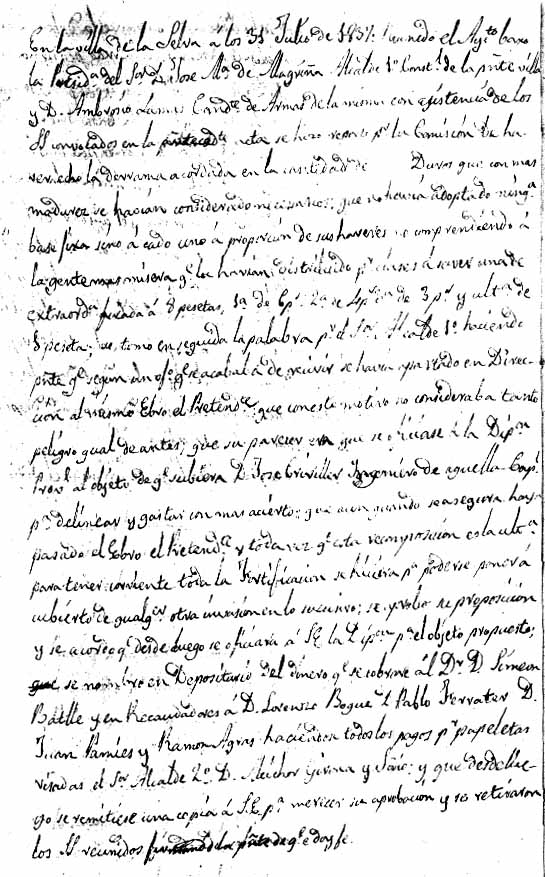 En la villa de la Selva á los 31 Julio de 1837: reunido el Ayto baxo
la Presida del Sor D. Jose Ma de Magriñá Alcalde 1o Constl de la pnte villa
y D. Ambrosio Lamas Comdte de Armas de la misma con existencia de los
SS convocados en la acta se hizo reporte pr la Comision de ha-
ver echo la derrama acordada en la cantidad de Duros que con mas
madurez se havian considerado necesarios; que no havia adoptado ninga
base fixa sino á cada uno á proporcion de sus haveres no comprendiendo á
la gente mas misera qe la havian distribuido pr clases á saver una de
extraorda fixada á 8 pesetas, 1a de 6 ps 2a de 4 ps 3a de 3 ps y ulta de
peseta; que tomo en seguida la palabra pr el Sor Alcalde 1o haciendo
pnte qe segun un ofo qe se acababa de recivir se havia apartado en Direc-
cion al mismo Ebro el Pretende, que con este motivo no consideraba tanto
peligro qual de antes; que su parecer era que se oficiase á la Dipon
Provl al objeto de qe subiera D. Jose Criviller Ingeniero de aquella Capl
pa delinear y gastar con mas acierto; que aun quando se asegura haya
pasado el Ebro el Pretende y toda vez qe esta recomposicion es la ulta
para tener corriente toda la Fortificacion se hiciera pa poderse poner á
cubierto de qualqer otra invasion en lo sucesivo; se probó su proposicion
y se acordo qe desde luego se oficiara á SE la Dipon pa el objeto propuesto;
se nombro en Depositario del dinero qe se cobrare ál Dr D. Simeon
Batlle y en Recaudadores á D. Lorenzo Bogué D. Pablo Ferrater D.
Juan Pamies y Ramon Agras haciendose todos los pagos pr papeletas
visadas el Sor Alcalde 2o D. Melchor Girona y y que desde lue-
go se remitiese una copia á S.E. pa merecer su aprobacion y se retiraron
los SS reunidos de qe doy fe.